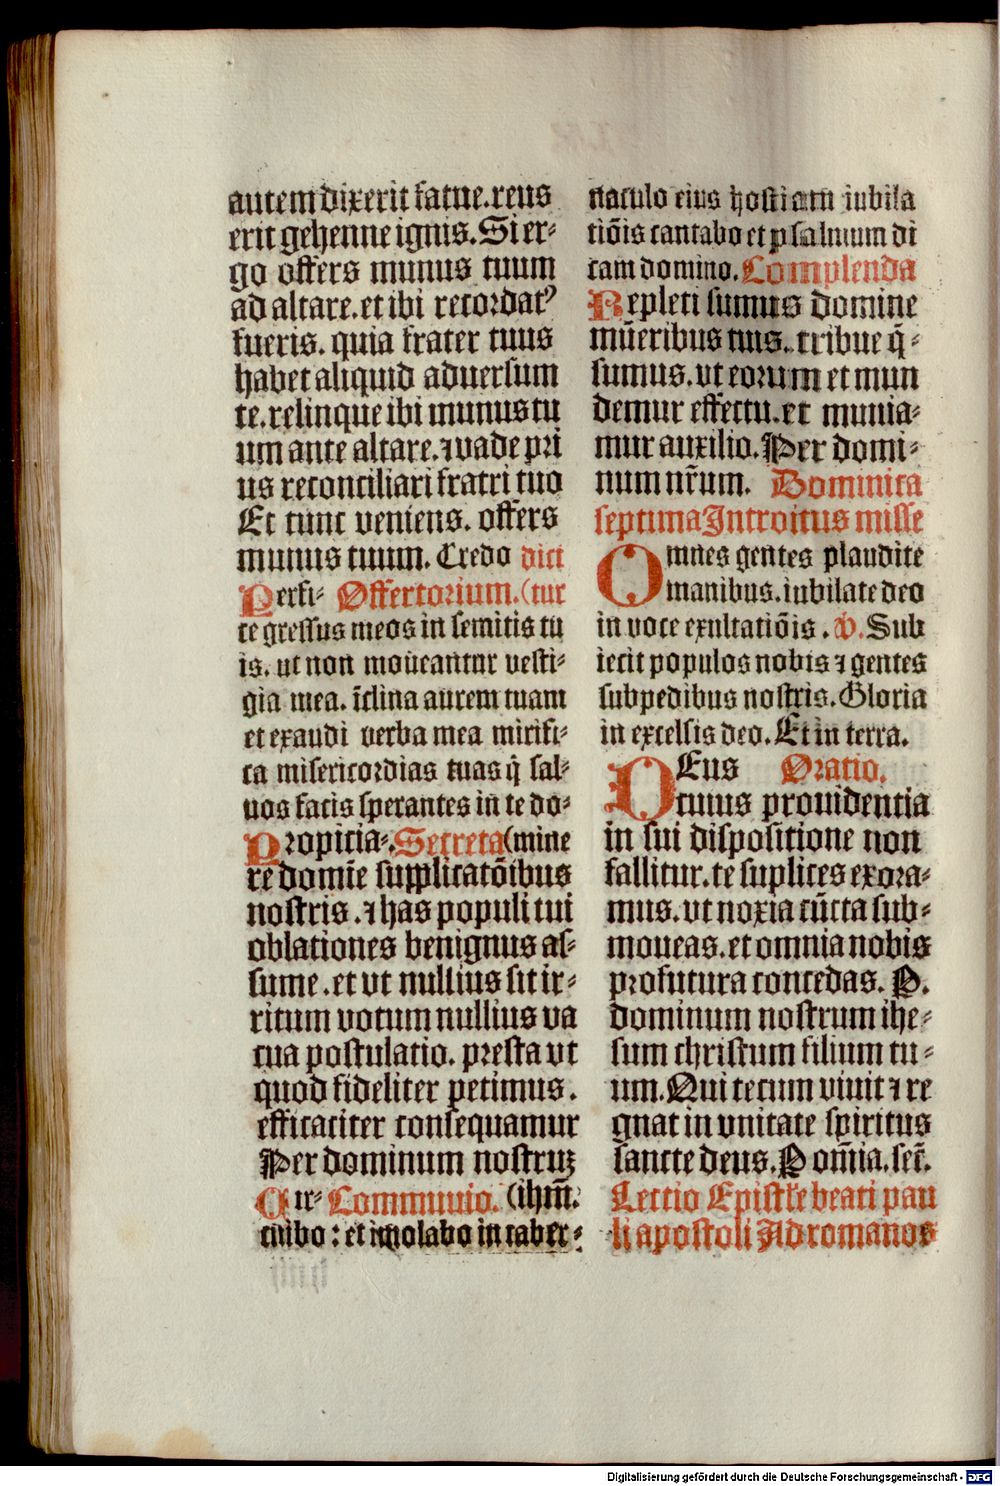 autem dixerit fatue. reus
erit gehenne ignis. Si er-
go offers munus tuum
ad altare. et ibi recordatꝰ
fueris. quia frater tuus
habet aliquid aduersum
te. relinque ibi munus tu
um ante altare. ⁊ vade pri
us reconciliari fratri tuo
Et tunc veniens. offers
munus tuum. Credo dici
Perfi- Offertorium. (tur
ce gressus meos in semitis tu
is. ut non moueantur vesti-
gia mea. ĩclina aurem tuam
et exaudi verba mea mirifi-
ca misericordias tuas q̃ sal-
uos facis sperantes in te do-
Propicia-. Secreta (mine
re domĩe supplicatõibus
nostris. ⁊ has populi tui
oblationes benignus as-
sume. et vt nullius sit ir-
ritum votum nullius va
cua postulatio. presta vt
quod fideliter petimus.
efficaciter consequamur
Per dominum nostruꝫ
Cir- Communio. (ihm̃.
cuibo: et imolabo in taber-
naculo eius hostiam iubila
tiõis cantabo et psalmum di
cam domino. Complenda
Repleti sumus domine
mũeribus tuis. tribue q̃-
sumus. vt eorum et mun
demur effectu. et munia-
mur auxilio. Per domi-
num nr̃um. Dominica
septima Introitus misse
Omnes gentes plaudite
manibus. iubilate deo
in voce exultatiõis. v. Sub
iecit populos nobis ⁊ gentes
sub pedibus nostris. Gloria
in excelsis deo. Et in terra.
DEus Oratio.
cuius prouidentia
in sui dispositione non
fallitur. te suplices exora-
mus. vt noxia cũcta sub-
moueas. et omnia nobis
profutura concedas. P.
dominum nostrum ihe-
sum christum filium tu-
um. Qui tecum viuit ⁊ re
gnat in vnitate spiritus
sancte deus. P om̃ia. sec̃.
Lectio Epistle beati pau
li apostoli Ad romanos
Digitalisierung gefördert durch die Deutsche Forschungsgemeinschaft - DFG